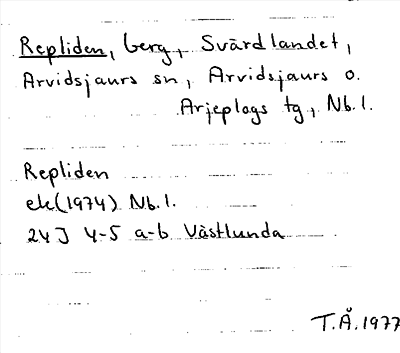 Repliden, berg, Svärdlandet,
Arvidsjaurs sn, Arvidsjaurs o.
Arjeplogs tg, Nb. l.
Repliden
ek (1974) Nb. l.
24J 4-5 a-b Västlunda
T.Å. 1977